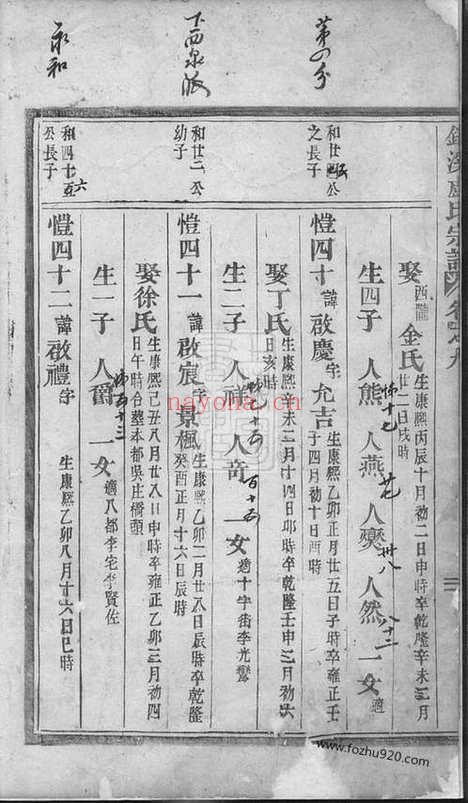 第四分
下西泉派
永和
盧氏宗譜
卷之九
娶 酉隴 金氏 生康熙丙辰十月初二日申時卒乾隆辛未三月
廿二日戌時
生四子 人熊 人燕 人爕 人然 一女 適
和廿四公
之長子
愷四十 諱 啟慶 字 允吉 生康熙乙卯正月廿五日子時卒雍正壬
子四月初十日酉時
娶丁氏 生康熙辛未二月十四日卯時卒乾隆壬申三月初六
日亥時
生二子 人視 人奇 一女 適十字街李光鸞
和廿二公
幼子
愷四十一 諱 啟宸 字 景楓 生康熙乙卯二月廿八日辰時卒乾隆
癸酉正月十六日辰時
娶徐氏 生康熙己丑八月廿八日申時卒雍正乙卯三月初四
日午時合塟本都吳庄橋頭
生一子 人爵 一女 適八都李宅李賢佐
和四十五
公長子
愷四十二 諱 啟禮 字
生康熙乙卯八月十六日巳時
nayona.cn
www.fozhu920.com